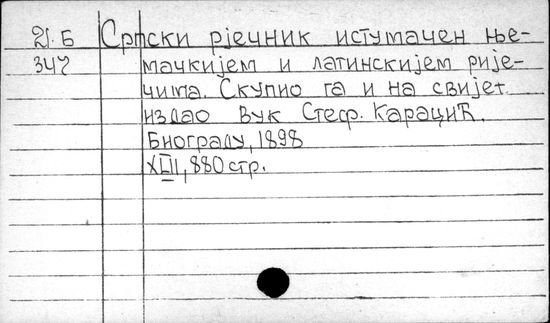 21. Б Српски рјечник истумачен ње-
347 мачкијем и латинскијем рије-
чима. Скупио га и на свијет
издао Вук Стеф. Караџић.
Биоград У, 1898
XLII, 880 стр.